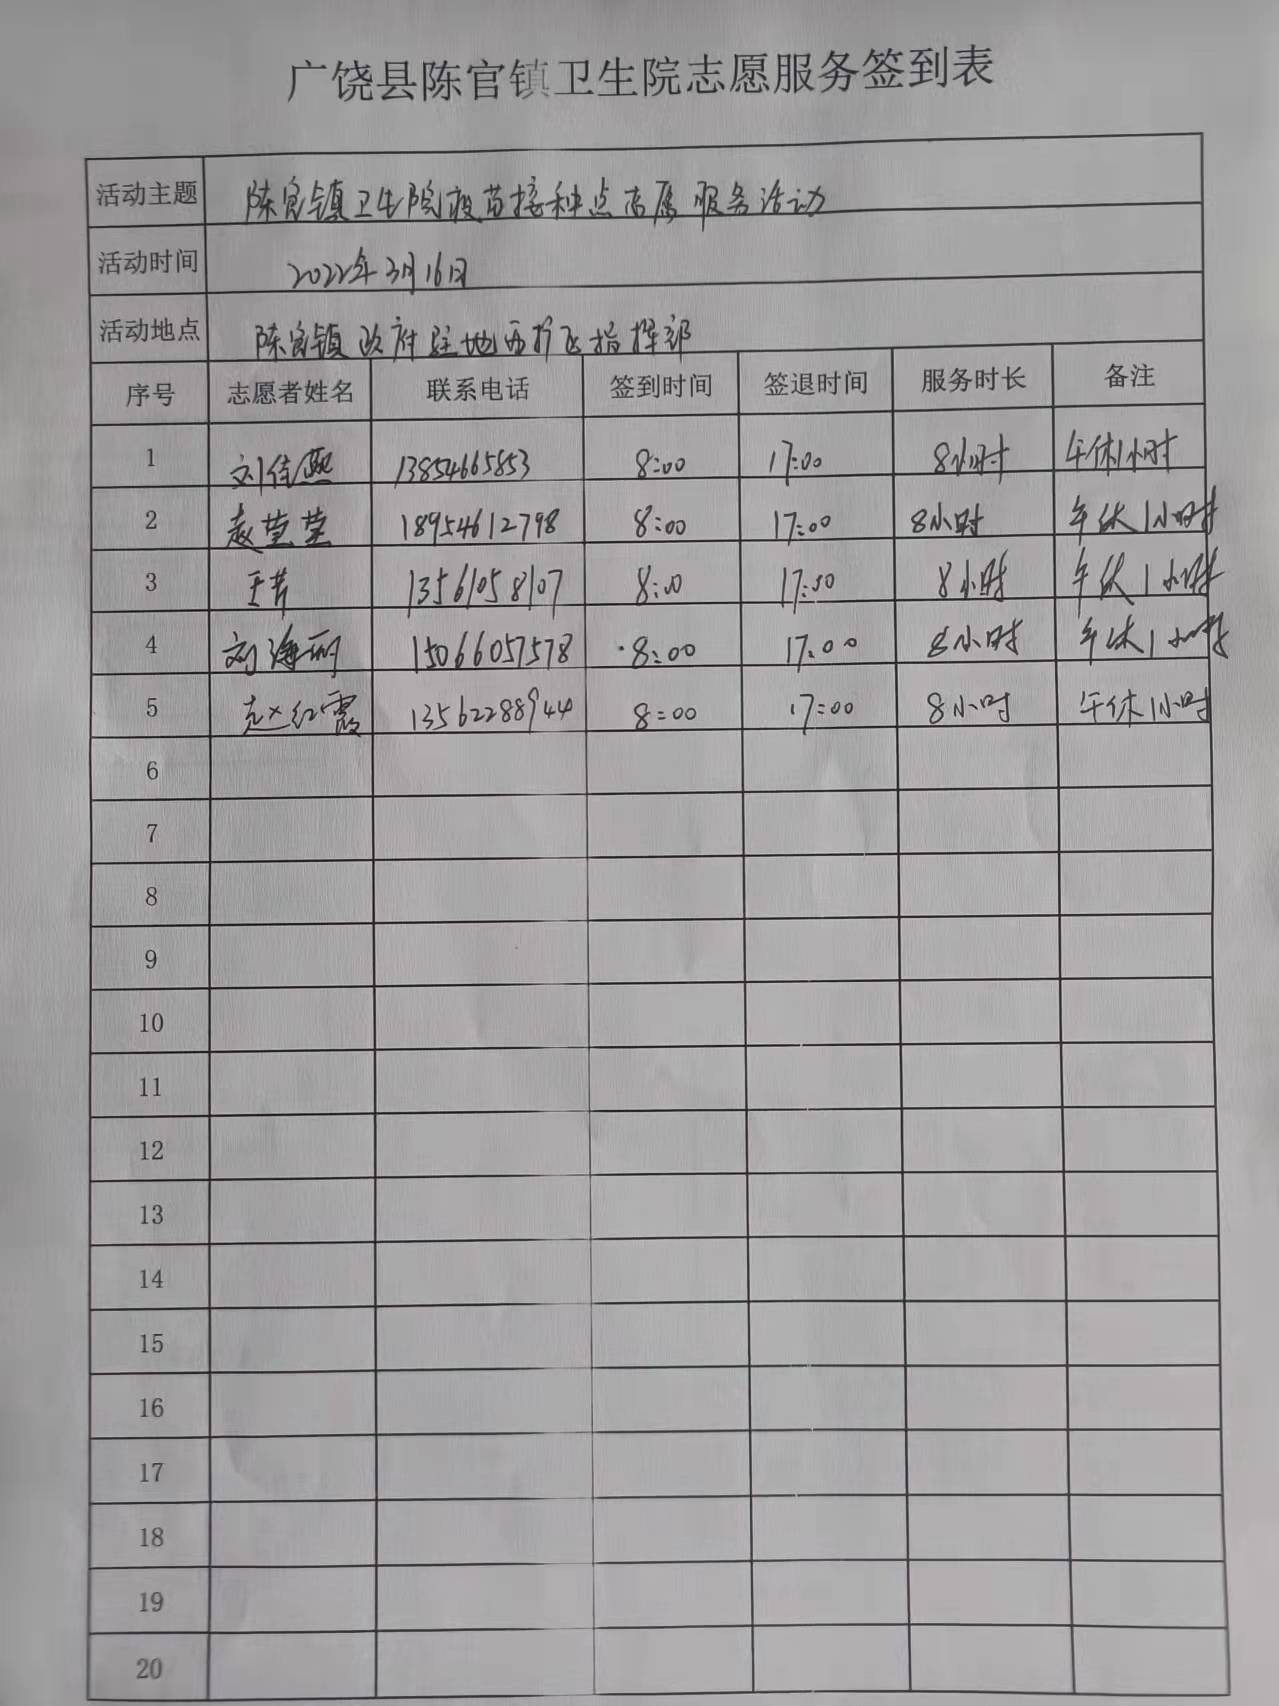 广饶县陈官镇卫生院志愿服务签到表
活动主题 陈官镇卫生院疫苗接种点志愿服务活动
活动时间 2022年3月16日
活动地点 陈官镇政府驻地西扩飞指挥部
序号 志愿者姓名 联系电话 签到时间 签退时间 服务时长 备注
1 刘佳熙 13854665853 8:00 17:00 8小时 午休1小时
2 袁莹莹 18954612798 8:00 17:00 8小时 午休1小时
3 王芳 13561058107 8:00 17:00 8小时 午休1小时
4 刘海丽 15066057578 8:00 17:00 8小时 午休1小时
5 赵红霞 13562288944 8:00 17:00 8小时 午休1小时
6
7
8
9
10
11
12
13
14
15
16
17
18
19
20